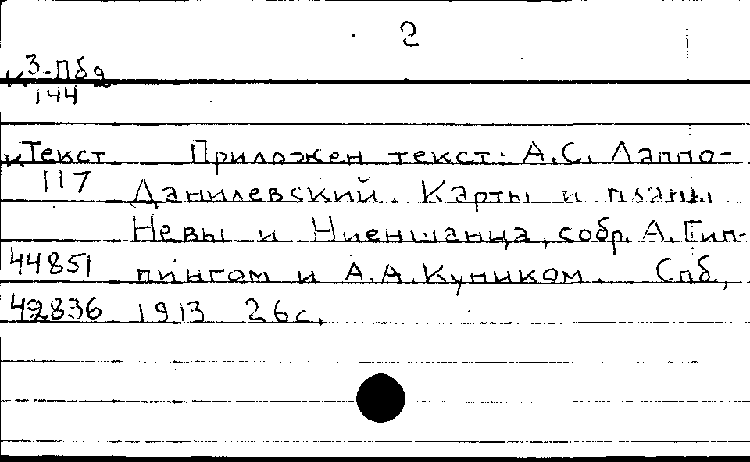 2
К 3-Пбд
144
К Текст Приложен текст: А.С. Лаппо-
117 Данилевский. Карты и планы
Невы и Ниеншанца, собр. А. Гип-
44851 пингом и А.А. Куником. Спб,
42836 1913 26с.